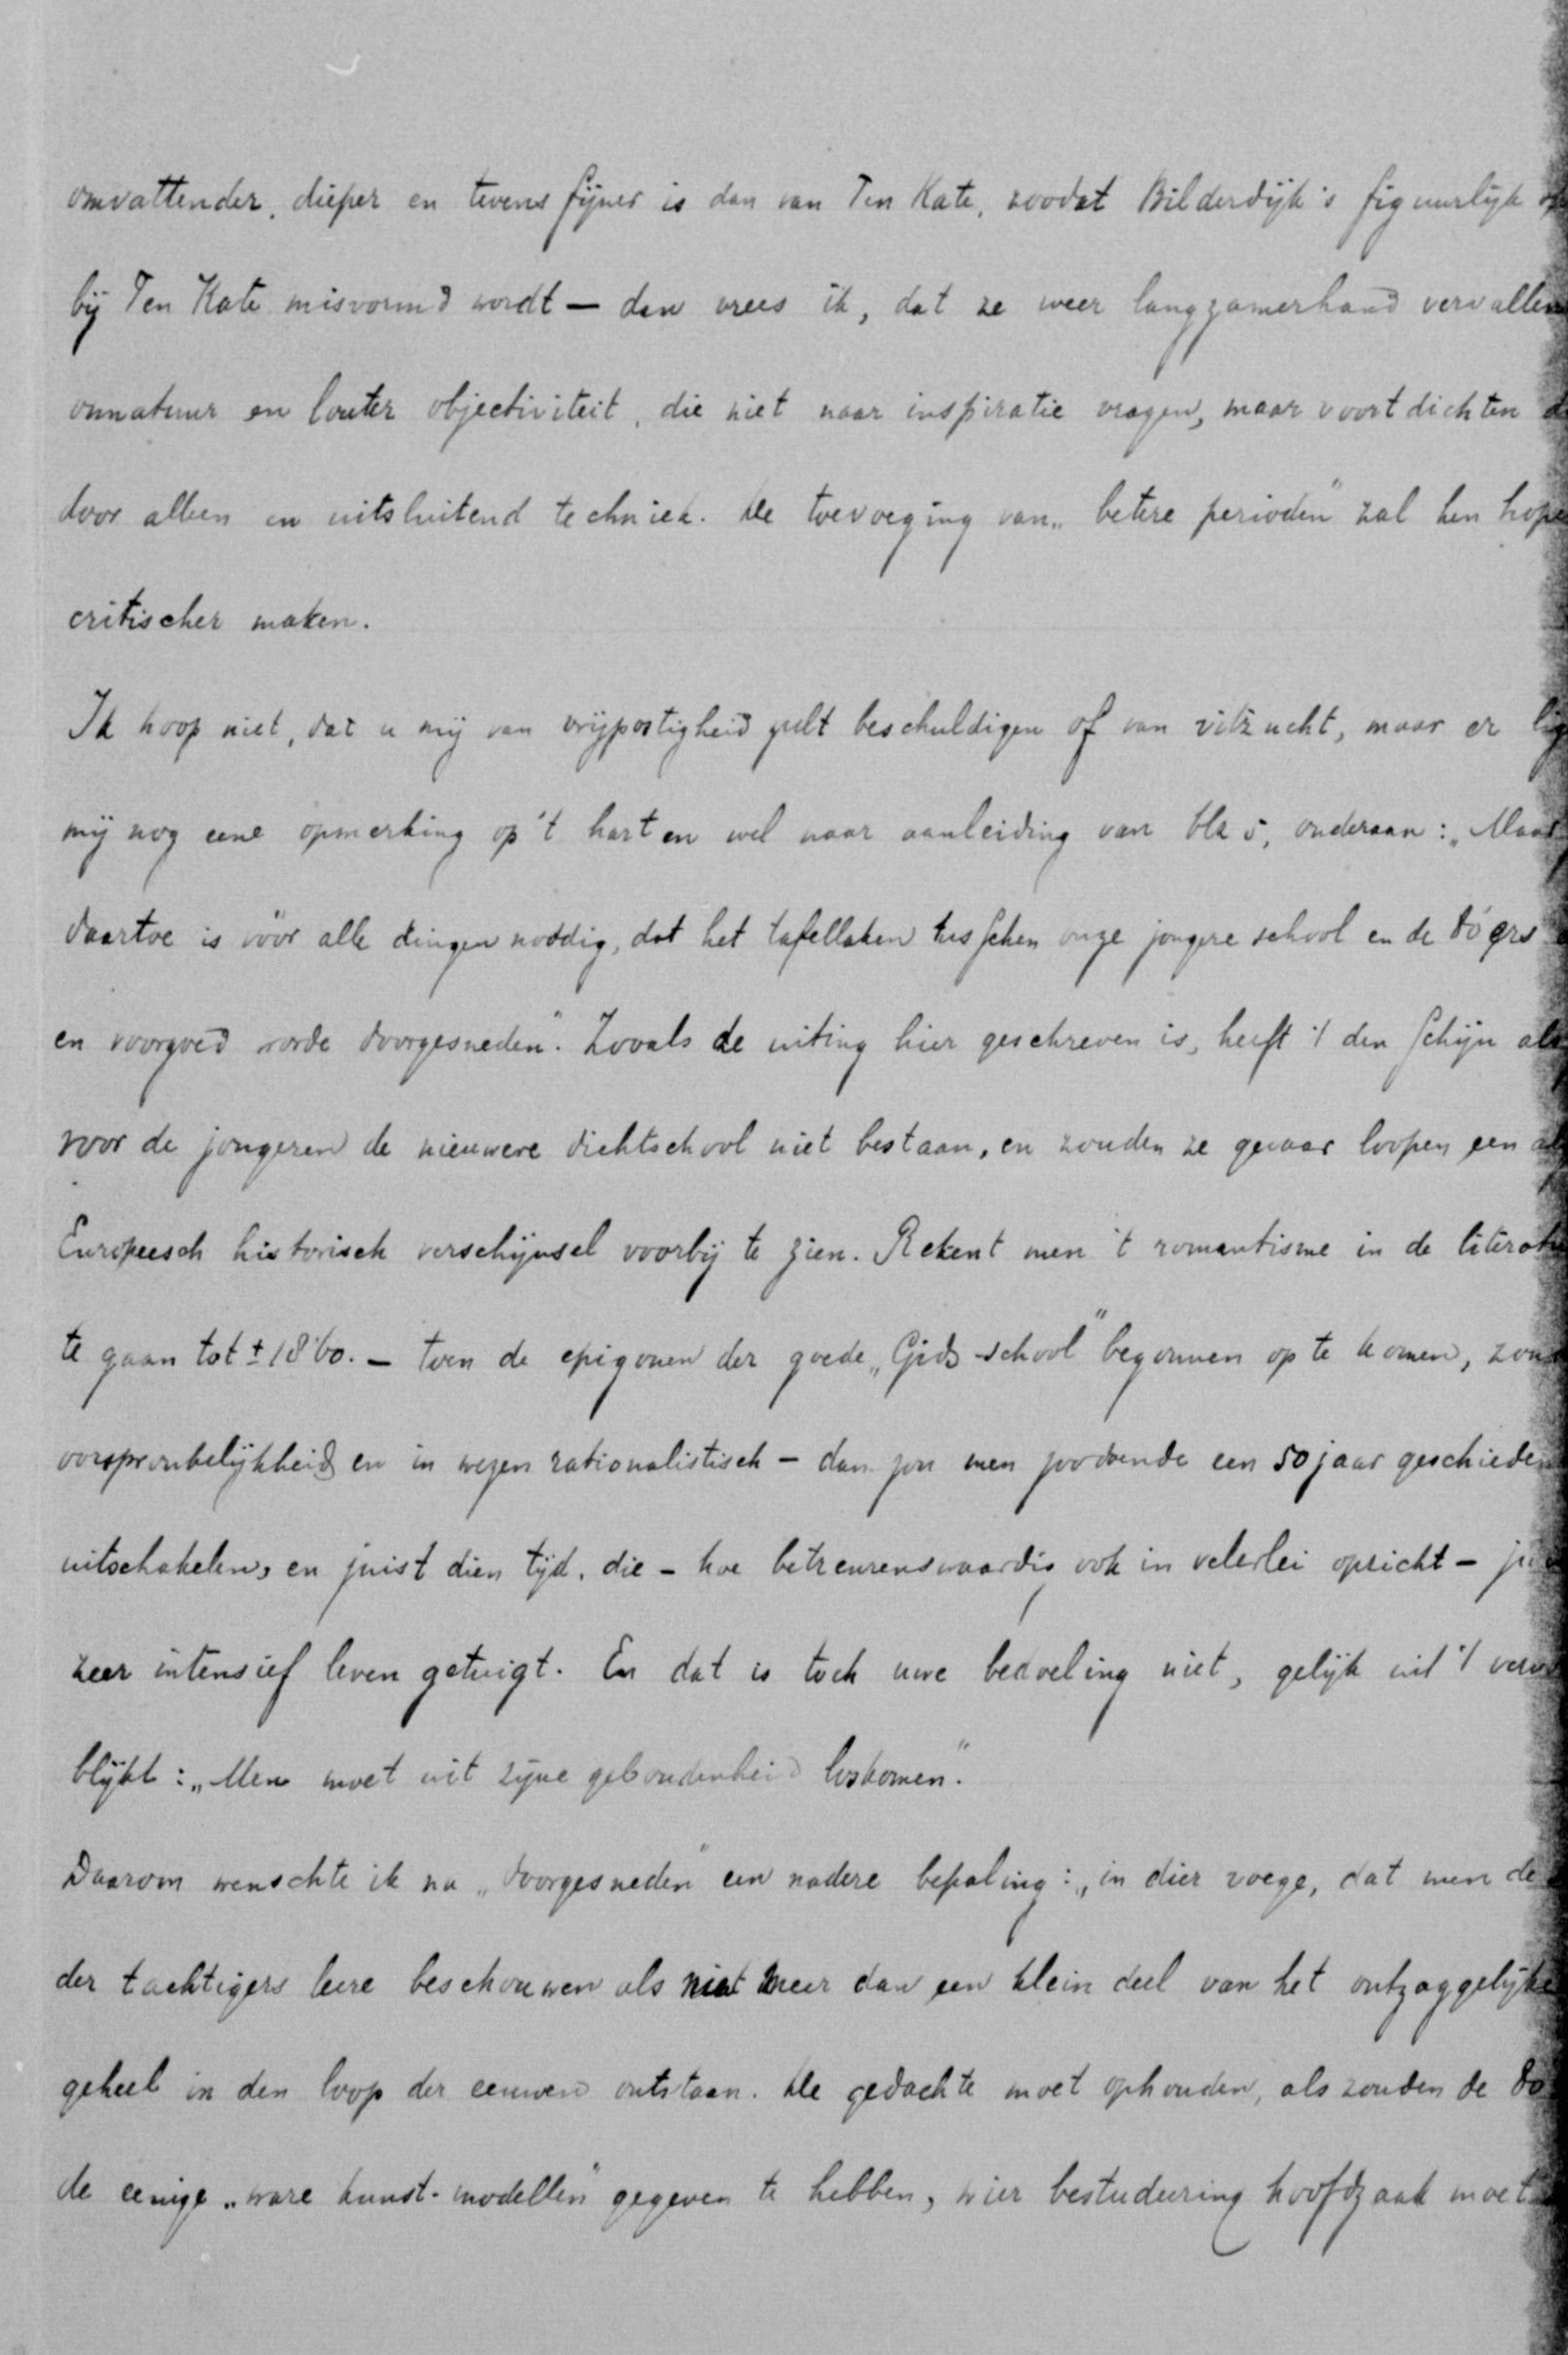 omvattender, dieper en tevens fijner is dan van Ten Kate, zoodat Bilderdijk's figuurlijk
bij Ten Kate misvormd wordt — dan vrees ik, dat ze weer langzamerhand vervallen
onnatuur en louter objectiviteit, die niet naar inspiratie vragen, maar voortdichten
door alleen en uitsluitend techniek. De toevoeging van „betere perioden" zal hen
critischer maken.
Ik hoop niet, dat u mij van vrijpostigheid zult beschuldigen of van vitzucht, maar er
mij nog eene opmerking op 't hart en wel naar aanleiding van blz 5, onderaan: „Maar
daartoe is vóór alle dingen noodig, dat het tafellaken tusschen onze jongere school en de 80gers
en voorgoed worde doorgesneden". Zooals de uiting hier geschreven is, heeft 't den schijn als
voor de jongeren de nieuwere dichtschool niet bestaan, en zouden ze gevaar loopen een
Europeesch historisch verschijnsel voorbij te zien. Rekent men 't romantisme in de
te gaan tot ± 1860. — toen de epigonen der goede „Gids-school" begonnen op te komen,
oorspronkelijkheid en in wezen rationalistisch — dan zou men zoodoende een 50 jaar
uitschakelen, en juist dien tijd, die — hoe betreurenswaardig ook in velerlei opzicht —
zeer intensief leven getuigt. En dat is toch uwe bedoeling niet, gelijk uit 't
blijkt: „Men moet uit zijne gebondenheid loskomen."
Daarom wenschte ik na „doorgesneden" een nadere bepaling: „in dier voege, dat men de
der tachtigers leere beschouwen als niet meer dan een klein deel van het ontzaggelijke
geheel in den loop der eeuwen ontstaan. De gedachte moet ophouden, als zouden de
de eenige „ware kunst-modellen" gegeven te hebben, wier bestudeering hoofdzaak moet